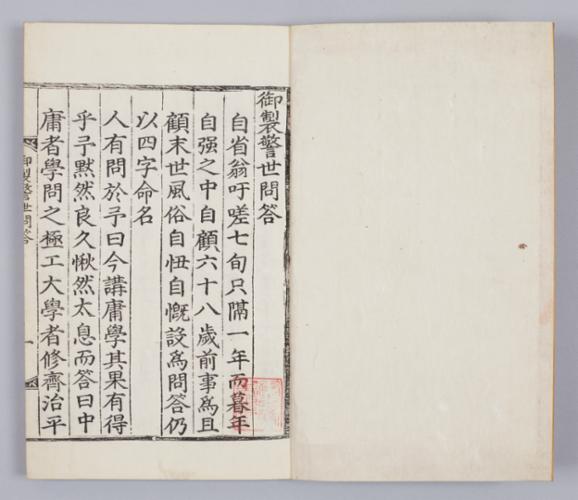 御製警世問答
自省翁吁嗟七旬只隔一年而暮年
自强之中自顧六十八歲前事爲且
顧末世風俗自忸自慨設爲問答仍
以四字命名
人有問於予曰今講庸學其果有得
乎予默然良久愀然太息而答曰中
庸者學問之極工大學者修齊治平
御製警世問答
一